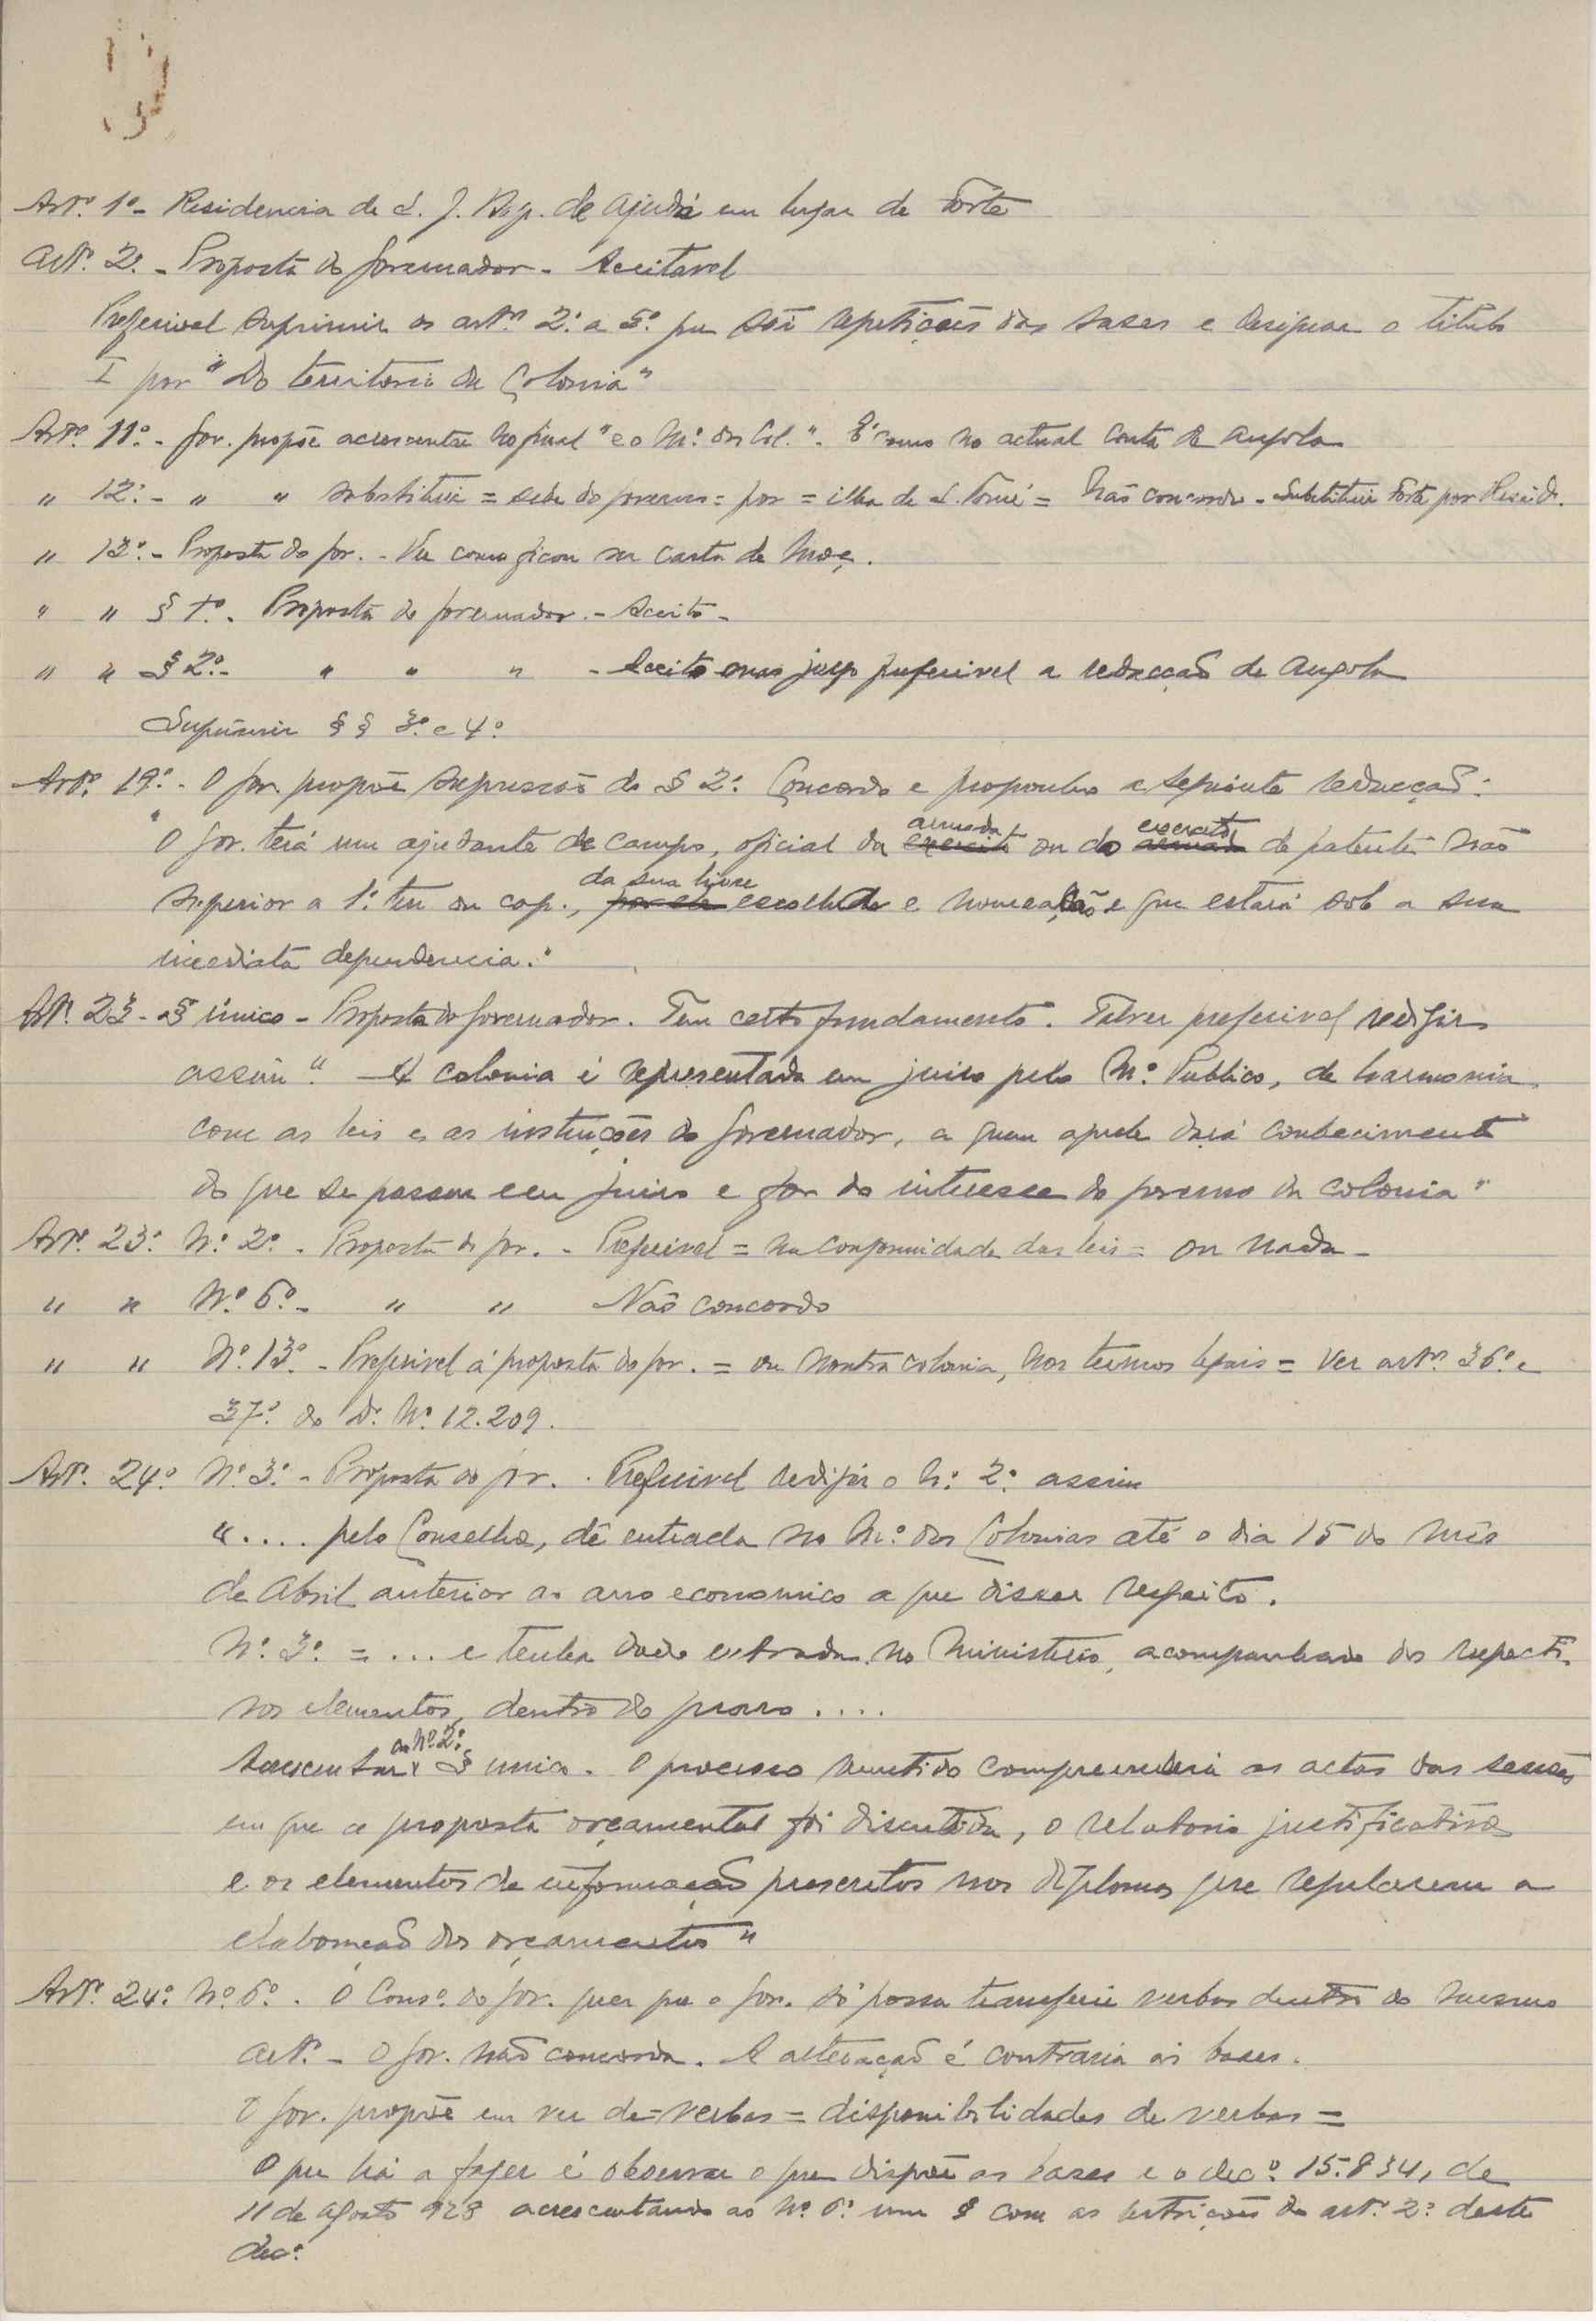 Artº. 1º - Residencia de S. J. Bap. de Ajudá em lugar de Forte
Artº. 2º. - Proposta do governador - Aceitavel
Preferivel suprimir os artºs 2º. a 5º. que são repetições das bases e designar o titulo
I por "Do territorio da Colonia"
Artº. 11º. - Gov. propõe acrescentar no final "e o Mº. das Col.". É como no actual carta de Angola
" 12º. - " " substituir = sede do governo = por = ilha de S. Tomé = Não concordo - Substituir Forte por Resid.
" 13º. - Proposta do gov. - Ver como ficou na carta de Moç.
" " § 1º. Proposta do governador. - Aceito -
" " § 2º. - " " " - Aceito mas julgo preferivel a redacção de Angola
Suprimir §§ 3º. e 4º
Artº. 19º. - O gov. propõe supressão do § 2º. Concordo e proponho a seguinte redacção:
"O gov. terá um ajudante de campo, oficial da exercito armada ou do armada exercito de patente não
superior a 1º. ten ou cap., por ele da sua livre escolha e nomeação e que estará sob a sua
imediata dependencia."
Artº. 23 - § unico - Proposta do governador. Tem certo fundamento. Talvez preferivel redigir
assim ". A colonia é representada em juizo pelo Mº. Publico, de harmonia
com as leis e as instruções do governador, a quem aquele dará conhecimento
do que se passar em juizo e for do interesse do governo da colonia"
Artº. 23º. Nº. 2º. - Proposta do gov. - Preferivel = na conformidade das leis = ou nada -
" " Nº. 6º. - " " Não concordo
" " Nº. 13º. - Preferivel á proposta do gov. = ou noutra colonia, nos termos legais = Ver artºs. 36º. e
37º. do D. Nº. 12.209.
Artº. 24º Nº. 3º. - Proposta do gov. . Preferivel redigir o Nº. 2º. assim
".... pelo Conselho, dê entrada no Mº. das Colonias até o dia 15 do mês
de Abril anterior ao ano economico a que disser respeito.
Nº. 3º. = ... e tenha dado entrada no Ministerio, acompanhado dos respecti-
vos elementos, dentro do prazo ....
Acrescentar ao Nº. 2º. § unico. O processo remetido compreenderá as actas das sessões
em que a proposta orçamental foi discutida, o relatorio justificativo
e os elementos de informação prescritos nos diplomas que regularem a
elaboração dos orçamentos"
Artº. 24º. Nº. 6º. . O Consº. do gov. quer que o gov. só possa transferir verbas dentro do mesmo
artº. - O gov. não concorda. A alteração é contraria ás bases.
O gov. propõe em vez de = verbas = disponibilidades de verbas =
O que há a fazer é observar o que dispõe as bases e o decº. 15.834, de
11 de Agosto 928 acrescentando ao Nº. 6º. um § com as restrições do artº. 2º. deste
decº.